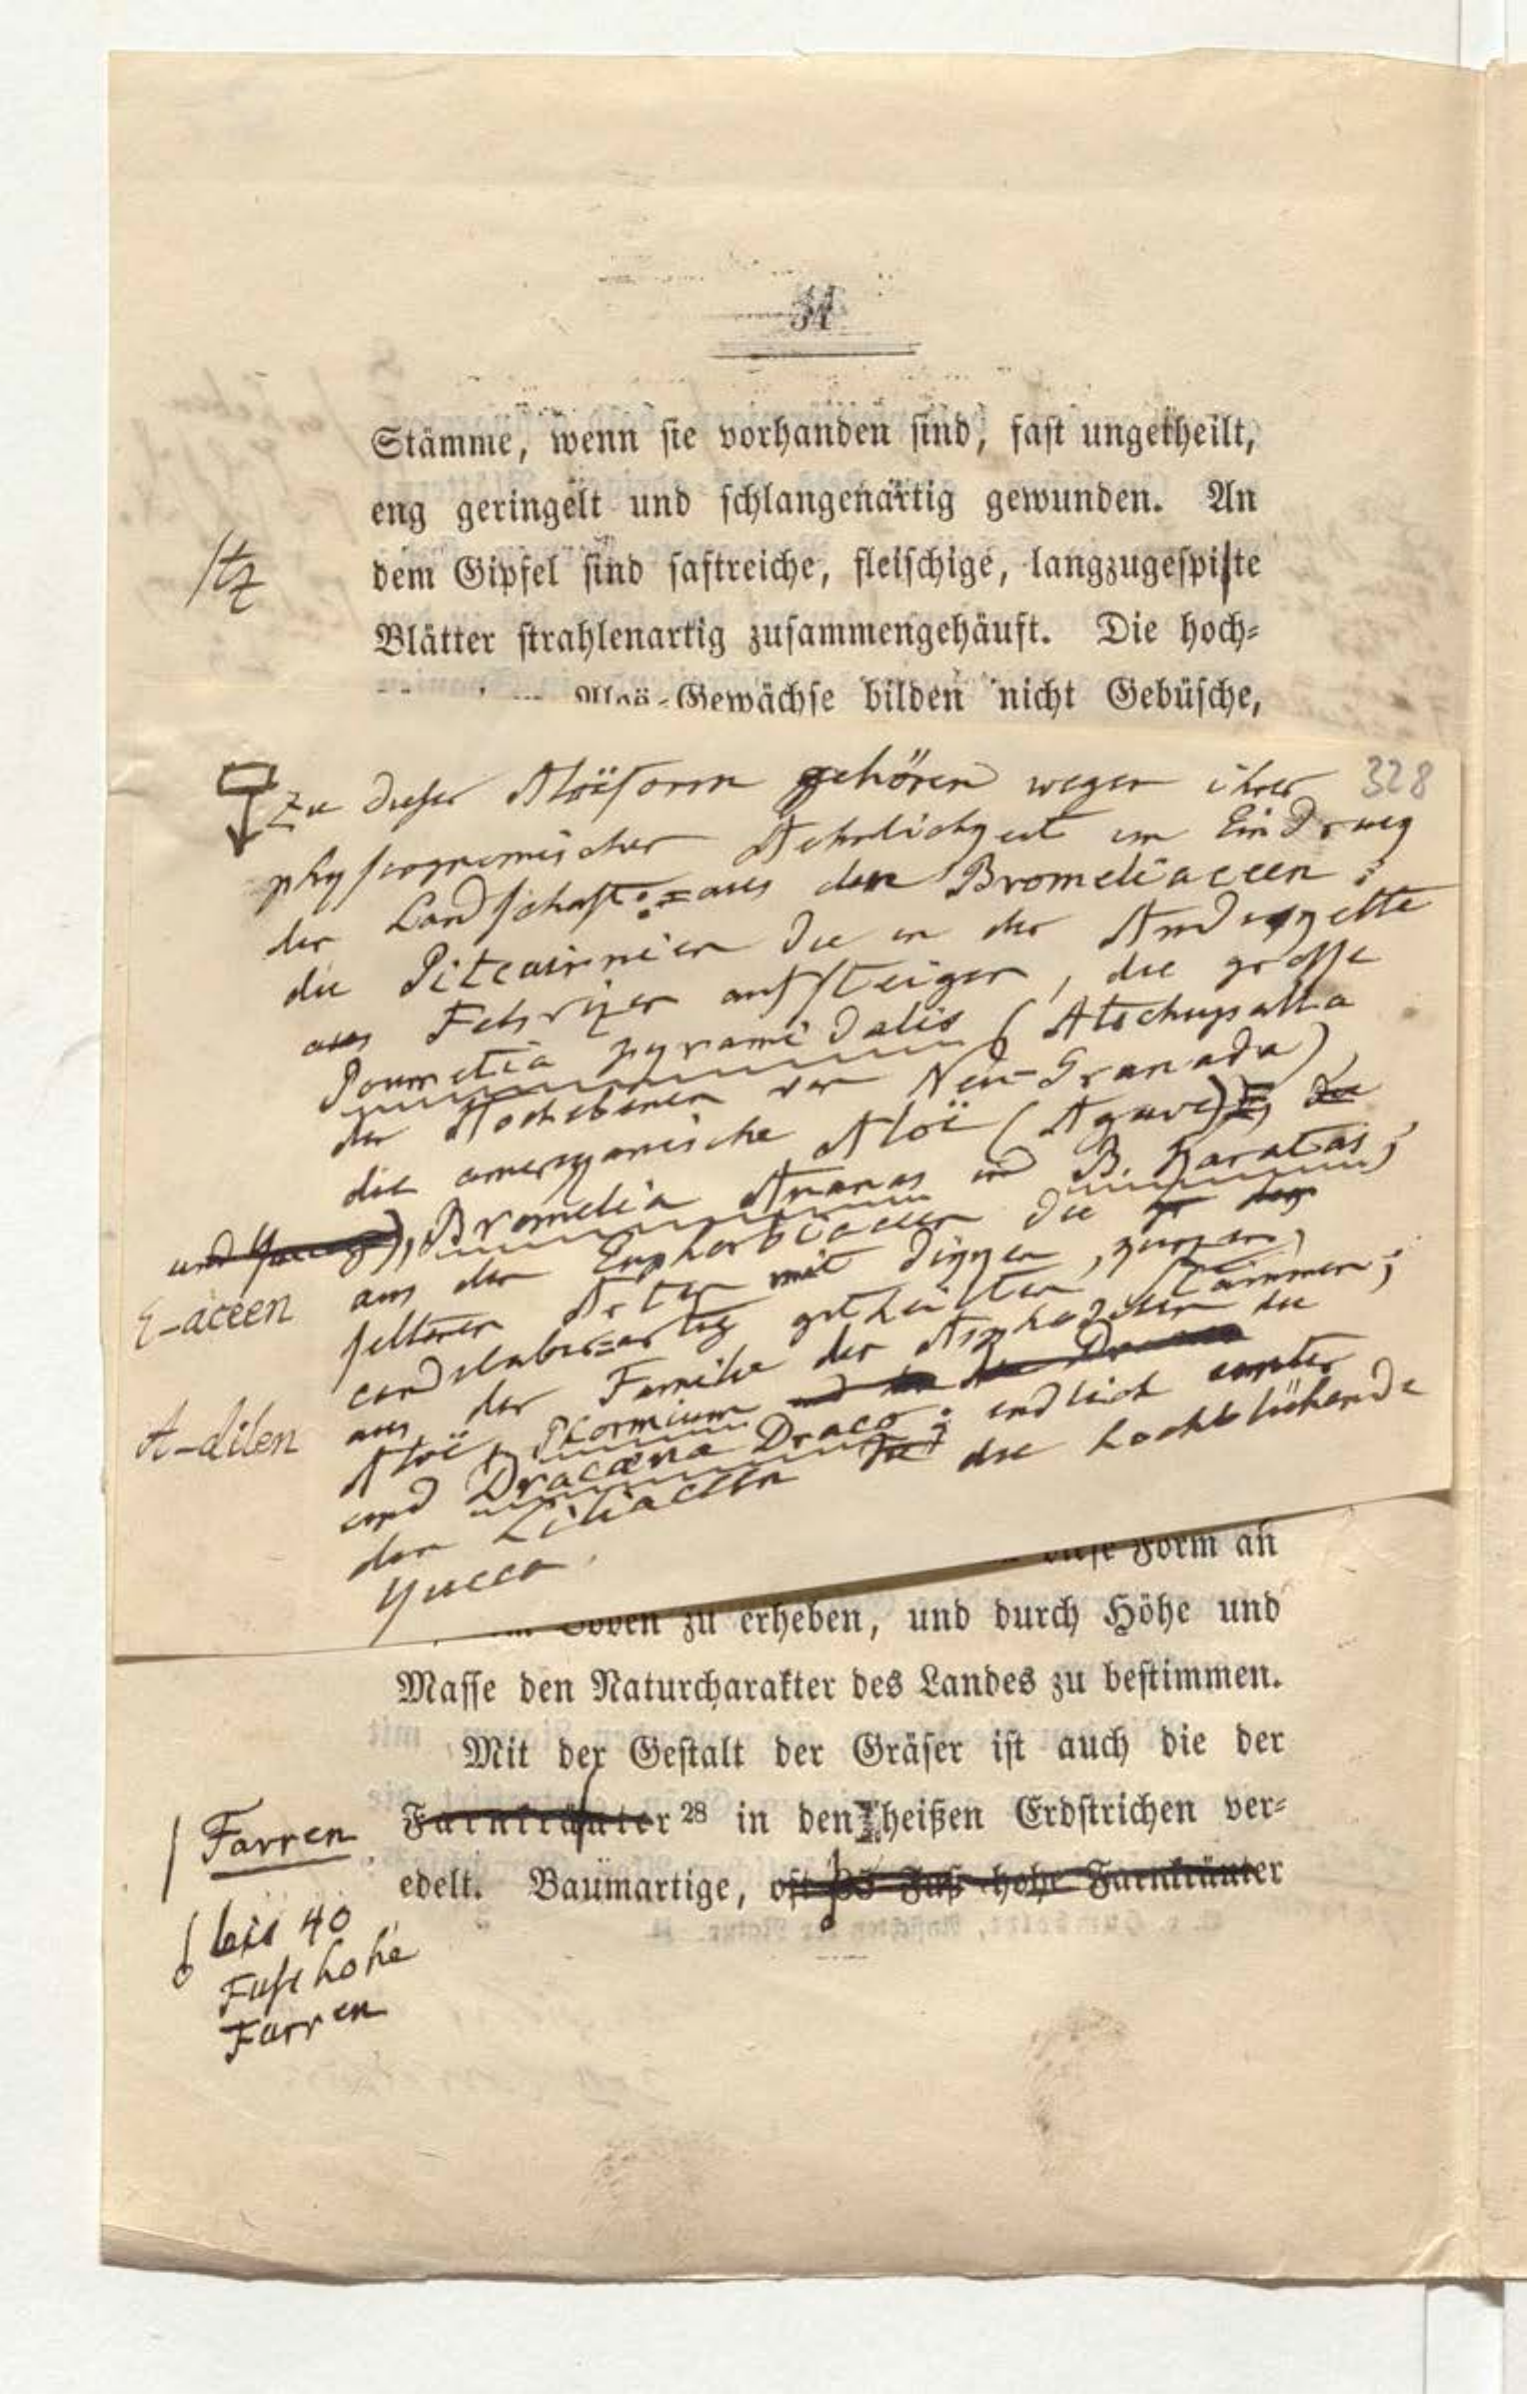 31
Stämme, wenn sie vorhanden sind, fast ungetheilt,
eng geringelt und schlangenartig gewunden. An
/tz
dem Gipfel sind saftreiche, fleischige, langzugespiste
Blätter strahlenartig zusammengehäuft. Die hoch-
Aloë-Gewächse bilden nicht Gebüsche,
328
Zu dieser Aloëform gehören wegen ihrer
physiognomischen Aehnlichkeit im Eindruck
der Landschaft: aus den Bromeliaceen:
die Pitcairnien die in der Andeskette
aus Felsrizen aufsteigen, die große
Pournetia pyramidalis (Atschupalla
der Hochebenen von Neu-Granada),
die amerikanische Aloë (Agave), die
und Yucca), Bromelia Ananas und B. Karatas;
E-aceen
aus den Euphorbiaceen die
seltenen Arten mit dikken, kurzen,
candelaber-artig getheilten Stämmen;
A-dilen
aus der Familie der Asphodilen die
Aloë, Phormium
und Dracaena Draco; endlich unter
den Liliaceen die hochblühende
Yucca.
diese Form an
Boden zu erheben, und durch Höhe und
Masse den Naturcharakter des Landes zu bestimmen.
Mit der Gestalt der Gräser ist auch die der
/ Farren
Farnkräuter 28 in den heißen Erdstrichen ver-
edelt. Baumartige, oft 35 Fuß hohe Farnkräuter
bis 40
Fuß hohe
Farren